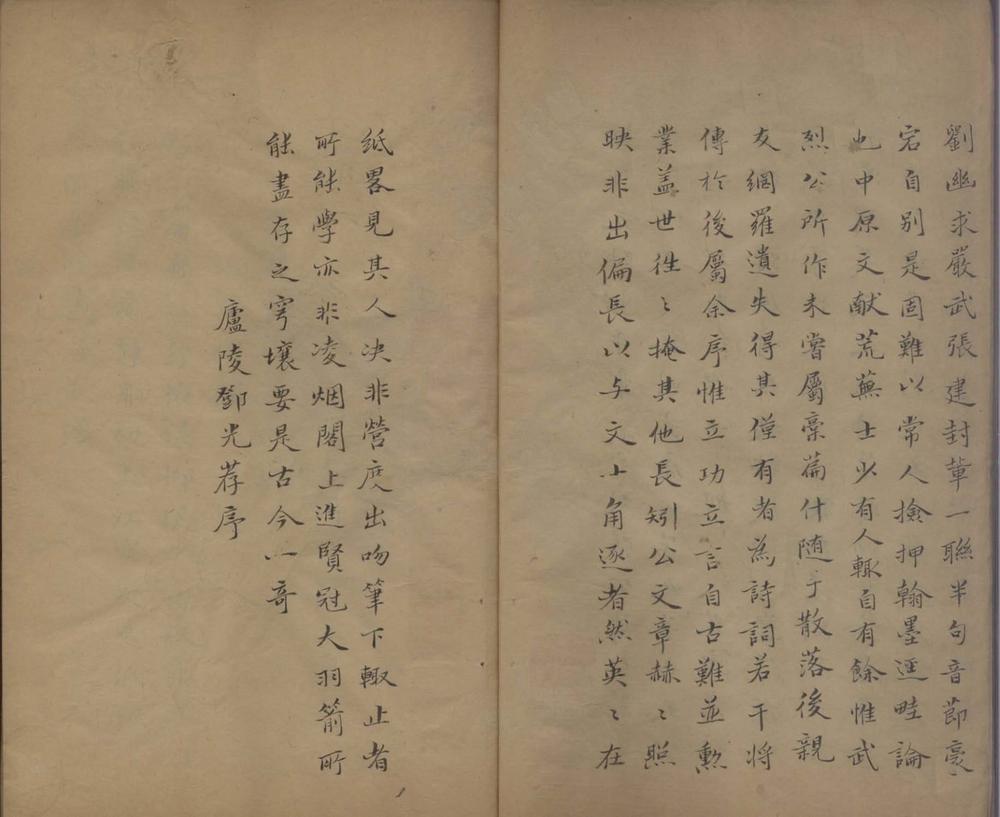 劉幽求嚴武張建封輩一聯半句音節豪
宕自别是固難以常人撿押翰墨逕畦論
也中原文献荒蕪士少有人輙自有餘惟武
烈公所作未嘗屬稾篇什随手散落後親
友綱羅遺失得其僅有者為詩詞若干将
傳於後屬余序惟立功立言自古難並勲
業盖世徃〻掩其他長矧公文章赫〻照
映非出偏長以与文士角逐者然英〻在
紙畧見其人决非營度出吻筆下輙止者
所能學亦非凌烟閣上進賢冠大羽箭所
能盡存之穹壤要是古今一奇
廬陵鄧光荐序